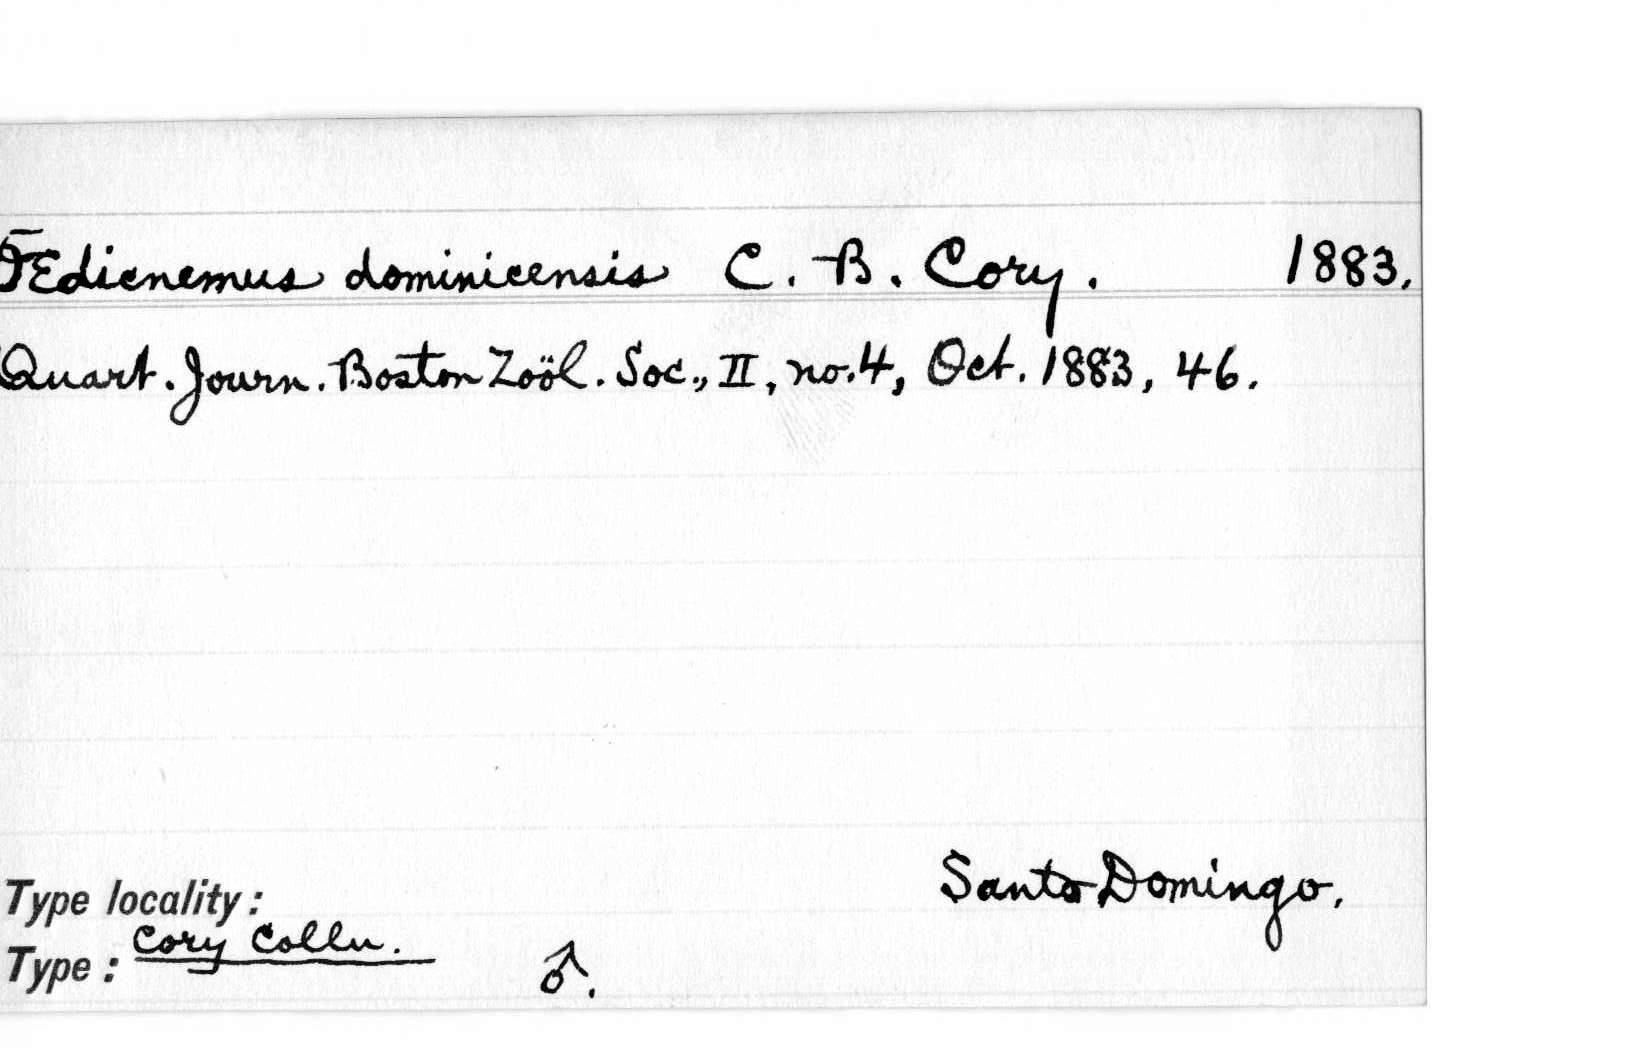 Œdicnemus dominicensis C. B. Cory. 1883.
Quart. Journ. Boston Zoöl. Soc., II, no. 4, Oct. 1883, 46.
Type locality: Santo Domingo.
Type: Cory Colln. ♂.